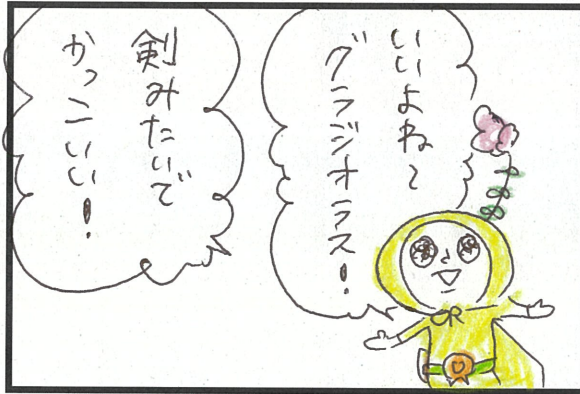 いいよね〜
グラジオラス！
剣みたいで
かっこいい！